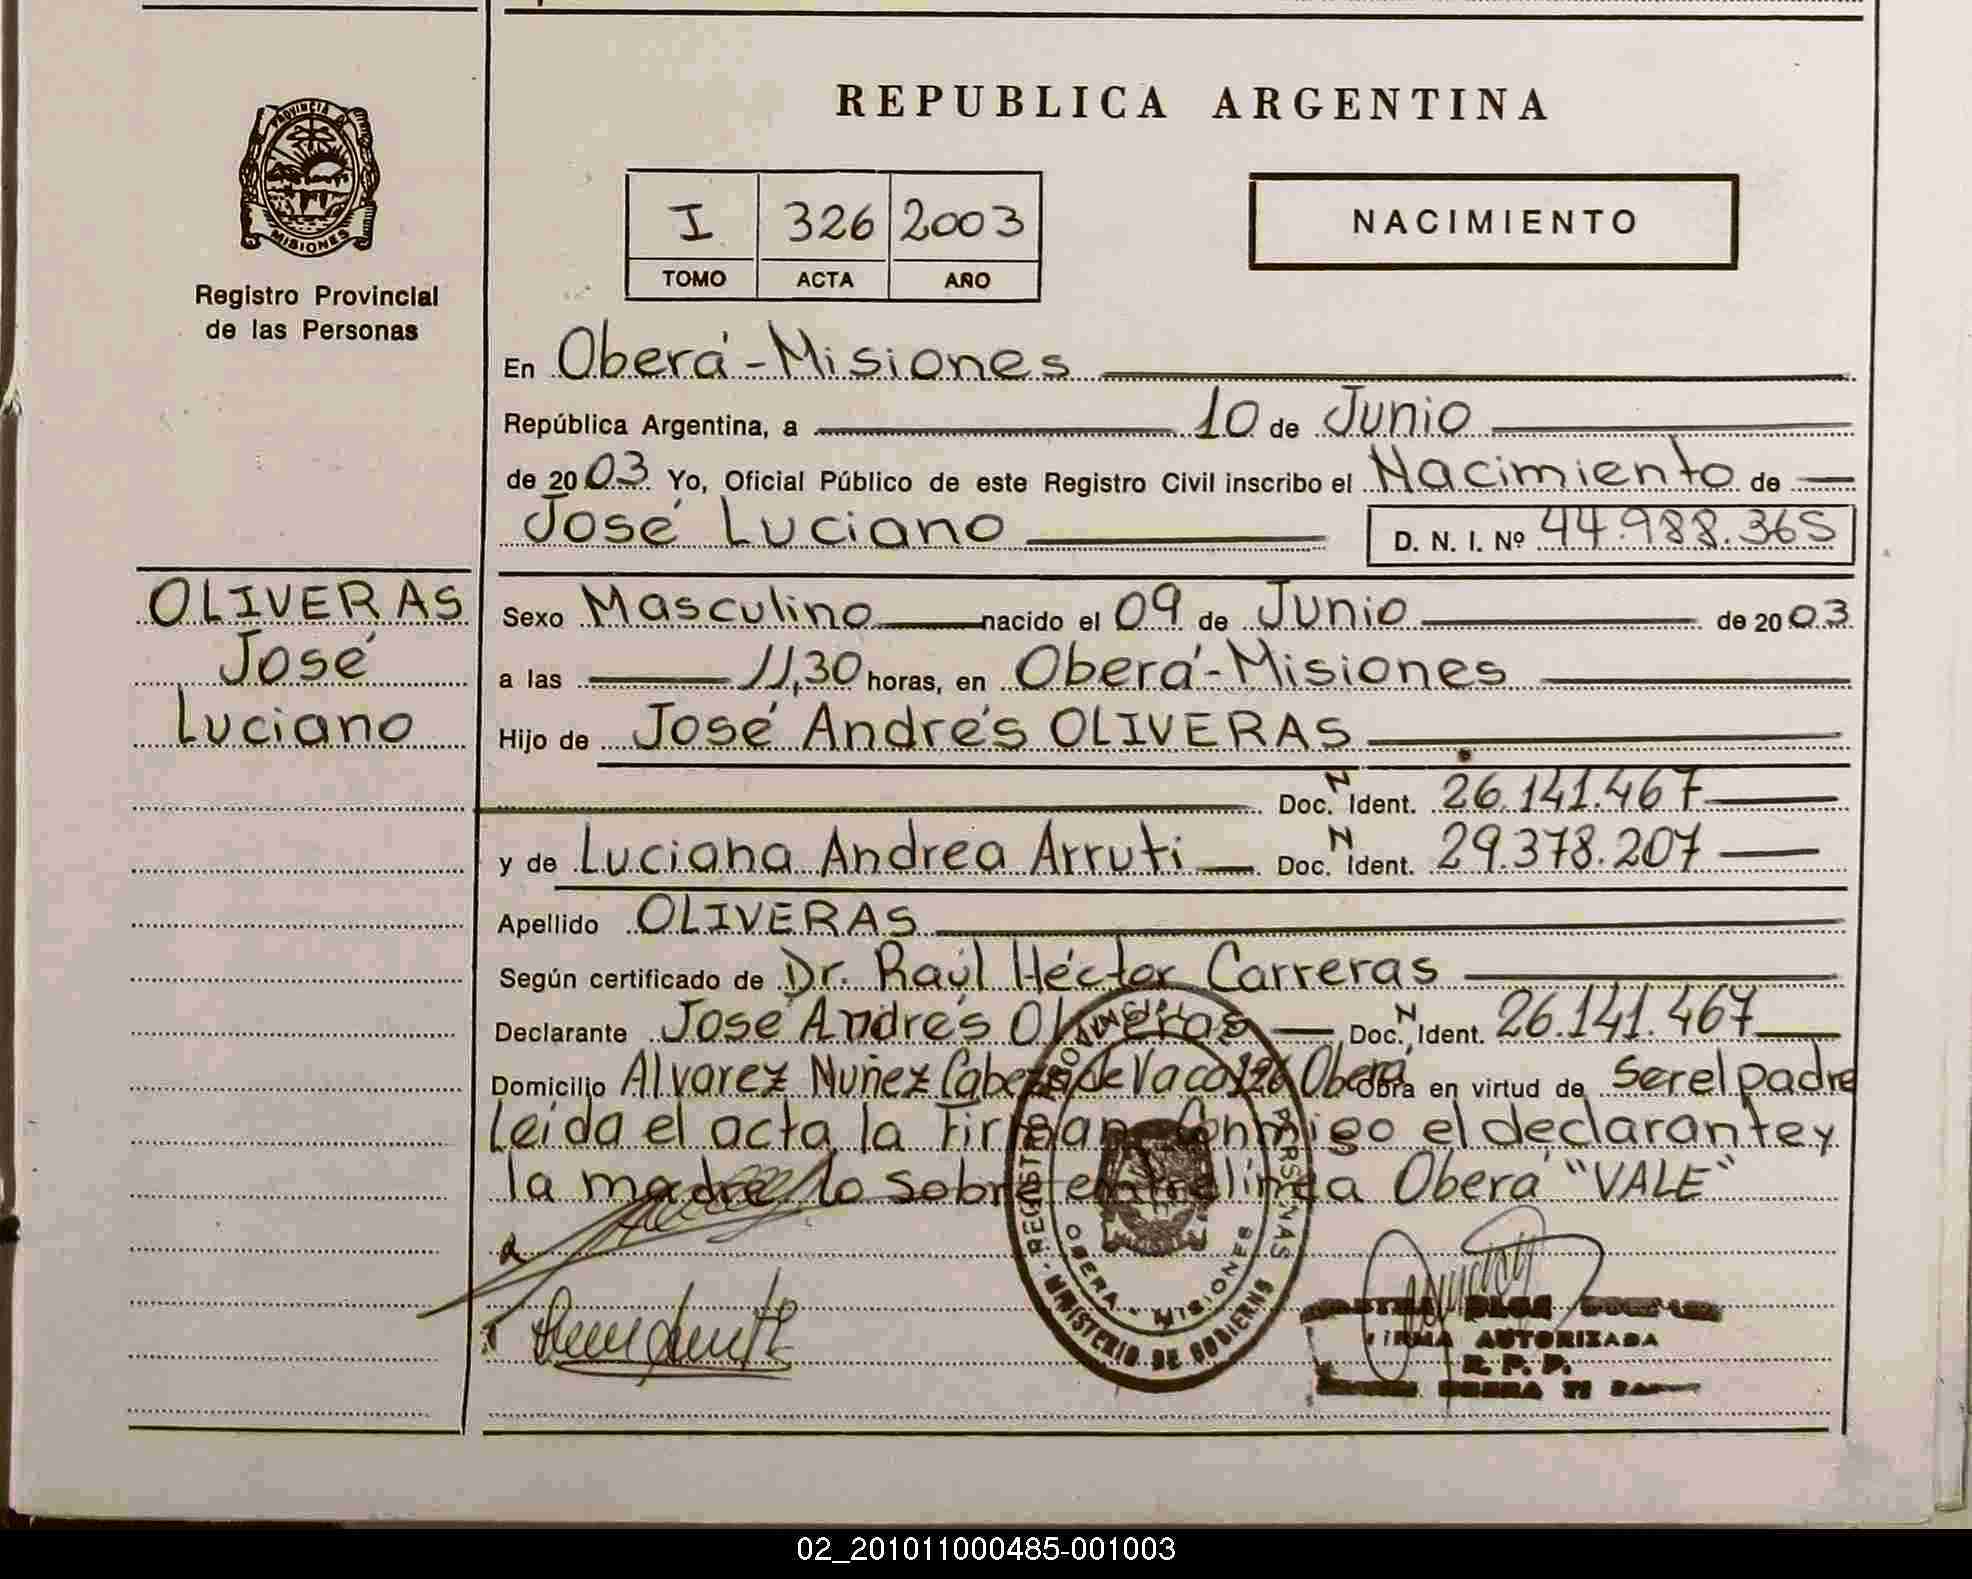 PROVINCIA DE
MISIONES
Registro Provincial
de las Personas
OLIVERAS
José
Luciano
REPUBLICA ARGENTINA
I 326 2003
TOMO ACTA AÑO
NACIMIENTO
En Oberá-Misiones
República Argentina, a 10 de Junio
de 2003 Yo, Oficial Público de este Registro Civil inscribo el Nacimiento de
José Luciano D. N. I. Nº 44.988.365
Sexo Masculino nacido el 09 de Junio de 2003
a las 11,30 horas, en Oberá-Misiones
Hijo de José Andrés OLIVERAS
Doc. N Ident. 26.141.467
y de Luciana Andrea Arruti Doc. N Ident. 29.378.207
Apellido OLIVERAS
Según certificado de Dr. Raúl Héctor Carreras
Declarante José Andrés Oliveras Doc. N Ident. 26.141.467
Domicilio Alvarez Nuñez Cabeza de Vaca 126 Oberá Obra en virtud de ser el padre
Leída el acta la Firman Conmigo el declarante y
la madre lo sobre entrelínea Oberá "VALE"
REGISTRO PROVINCIAL PERSONAS
OBERA - MISIONES
MINISTERIO DE GOBIERNO
FIRMA AUTORIZADA
R. P. P.
02_201011000485-001003